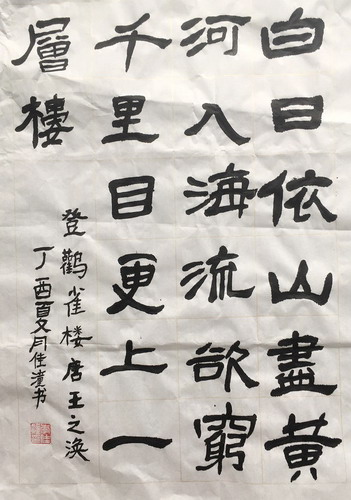 白日依山盡黄
河入海流欲窮
千里目更上一
層樓
登鸛雀楼唐王之涣
丁酉夏月佳潼书